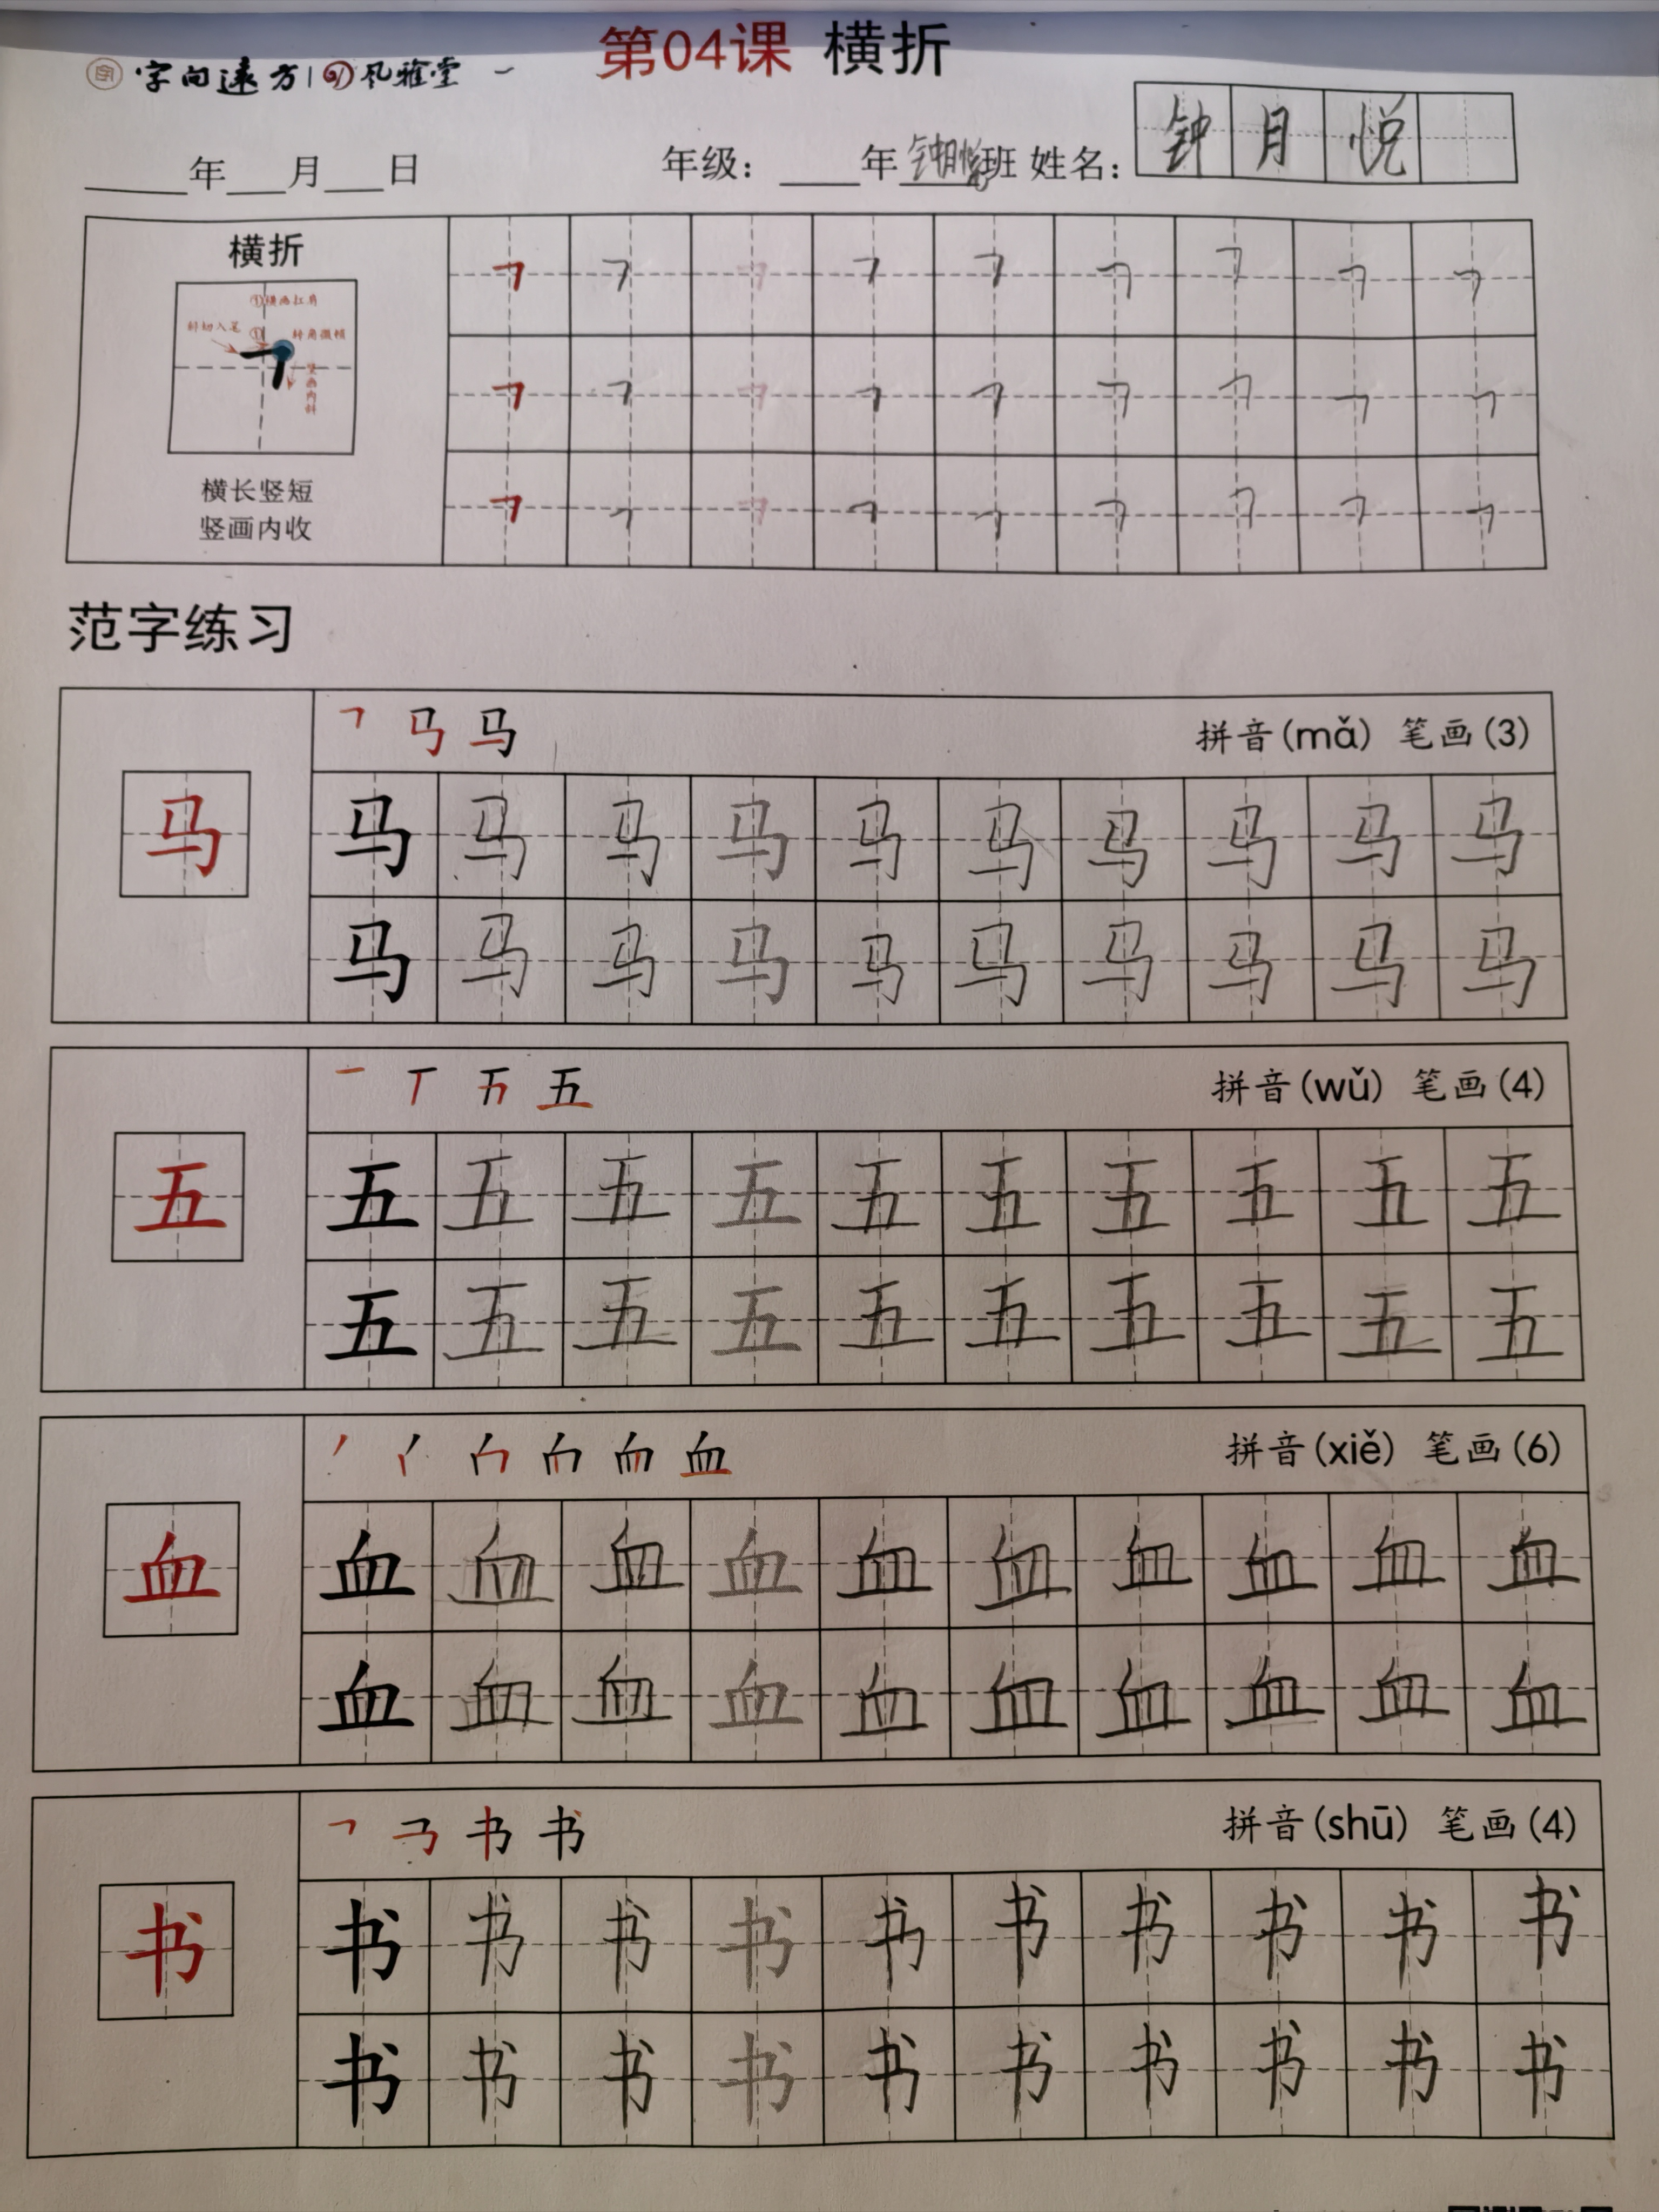 第04课 横折
字向远方 风雅堂 一
年 月 日 年级： 年 钟月悦 班 姓名： 钟月悦
横折
①横画扛肩
斜切入笔 ① 转角微顿
竖画内斜
横长竖短
竖画内收
范字练习
马 拼音(mǎ) 笔画(3)
马 马 马 马 马 马 马 马 马 马 马
马 马 马 马 马 马 马 马 马 马
一 丅 五 拼音(wǔ) 笔画(4)
五 五 五 五 五 五 五 五 五 五 五
五 五 五 五 五 五 五 五 五 五
血 拼音(xiě) 笔画(6)
血 血 血 血 血 血 血 血 血 血 血
血 血 血 血 血 血 血 血 血 血
书 拼音(shū) 笔画(4)
书 书 书 书 书 书 书 书 书 书 书
书 书 书 书 书 书 书 书 书 书